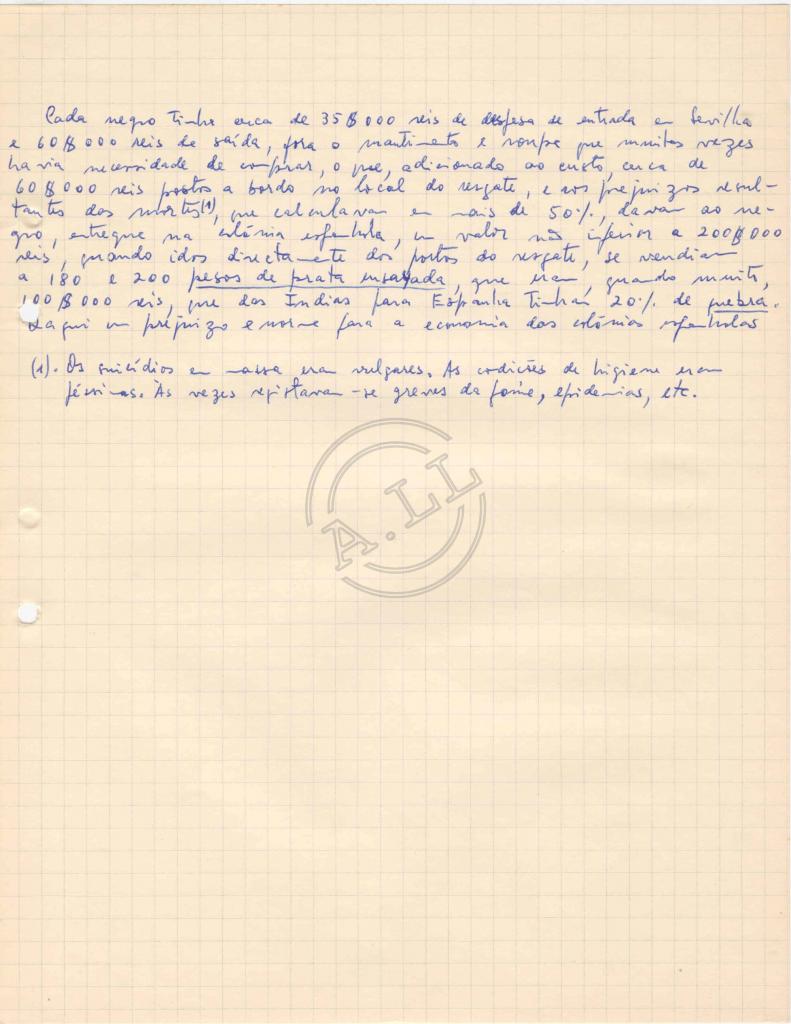 Cada negro tinha cerca de 35$000 reis de despesa de entrada em Sevilha
e 60$000 reis de saída, fora o mantimento e roupa que muitas vezes
havia necessidade de comprar, o que, adicionado ao custo, cerca de
60$000 reis postos a bordo no local do resgate, e aos prejuizos resul-
tantes das mortes(1), que calculavam em mais de 50%, davam ao ne-
gro, entregue na colónia espanhola, um valor não inferior a 200$000
reis, quando idos directamente dos portos do resgate, se vendiam
a 180 e 200 pesos de prata ensayada, que eram, quando muito,
100$000 reis, que das Indias para Espanha tinham 20% de quebra.
Daqui um prejuizo enorme para a economia das colónias espanholas
(1). Os suicídios em massa eram vulgares. As condições de higiene eram
péssimas. Às vezes registavam-se greves da fome, epidemias, etc.
A.LL